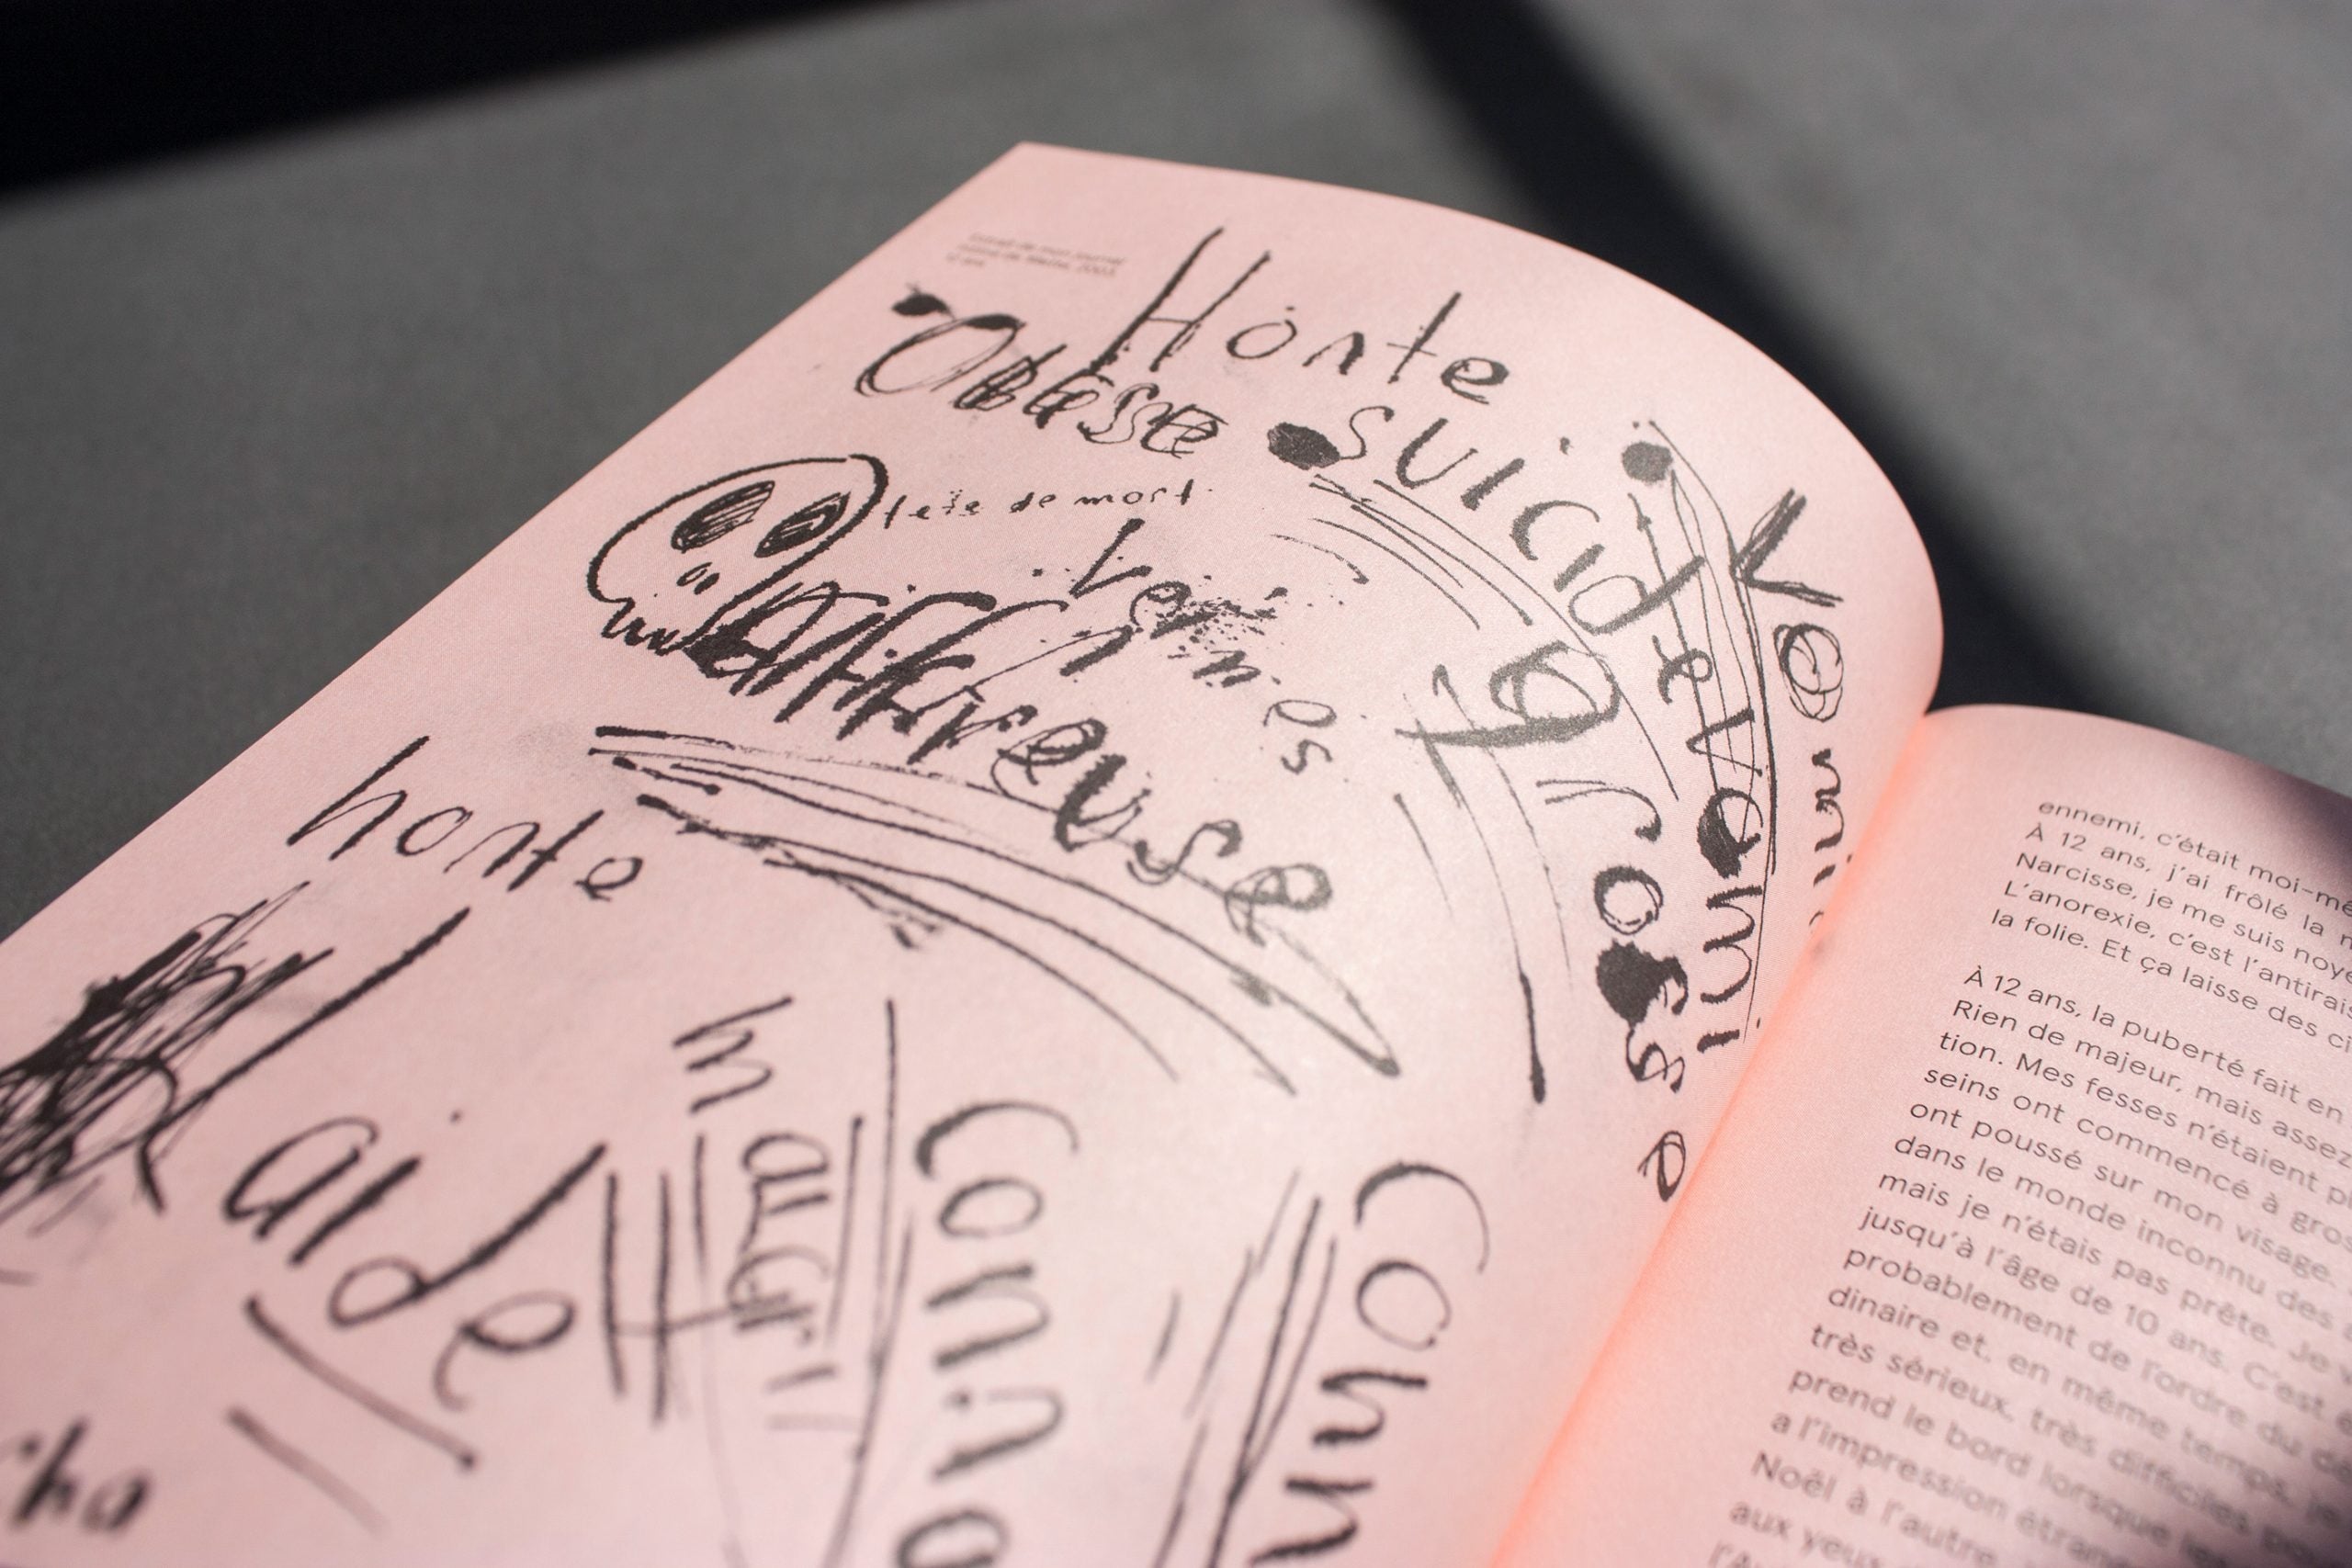 Honte
Obèse
suicide
tête de mort
Vomi
vermes
affreuse
grosse
Vomi
honte
laide
maigri
ennemi, c'était moi-mê
À 12 ans, j'ai frôlé la m
Narcisse, je me suis noyé
L'anorexie, c'est l'antirais
la folie. Et ça laisse des ci
À 12 ans, la puberté fait en
Rien de majeur, mais assez
tion. Mes fesses n'étaient p
seins ont commencé à gros
ont poussé sur mon visage.
dans le monde inconnu des
mais je n'étais pas prête. Je
jusqu'à l'âge de 10 ans. C'est
probablement de l'ordre du
dinaire et, en même temps,
très sérieux, très difficiles
prend le bord lorsque
a l'impression étran
Noël à l'autre
aux yeux